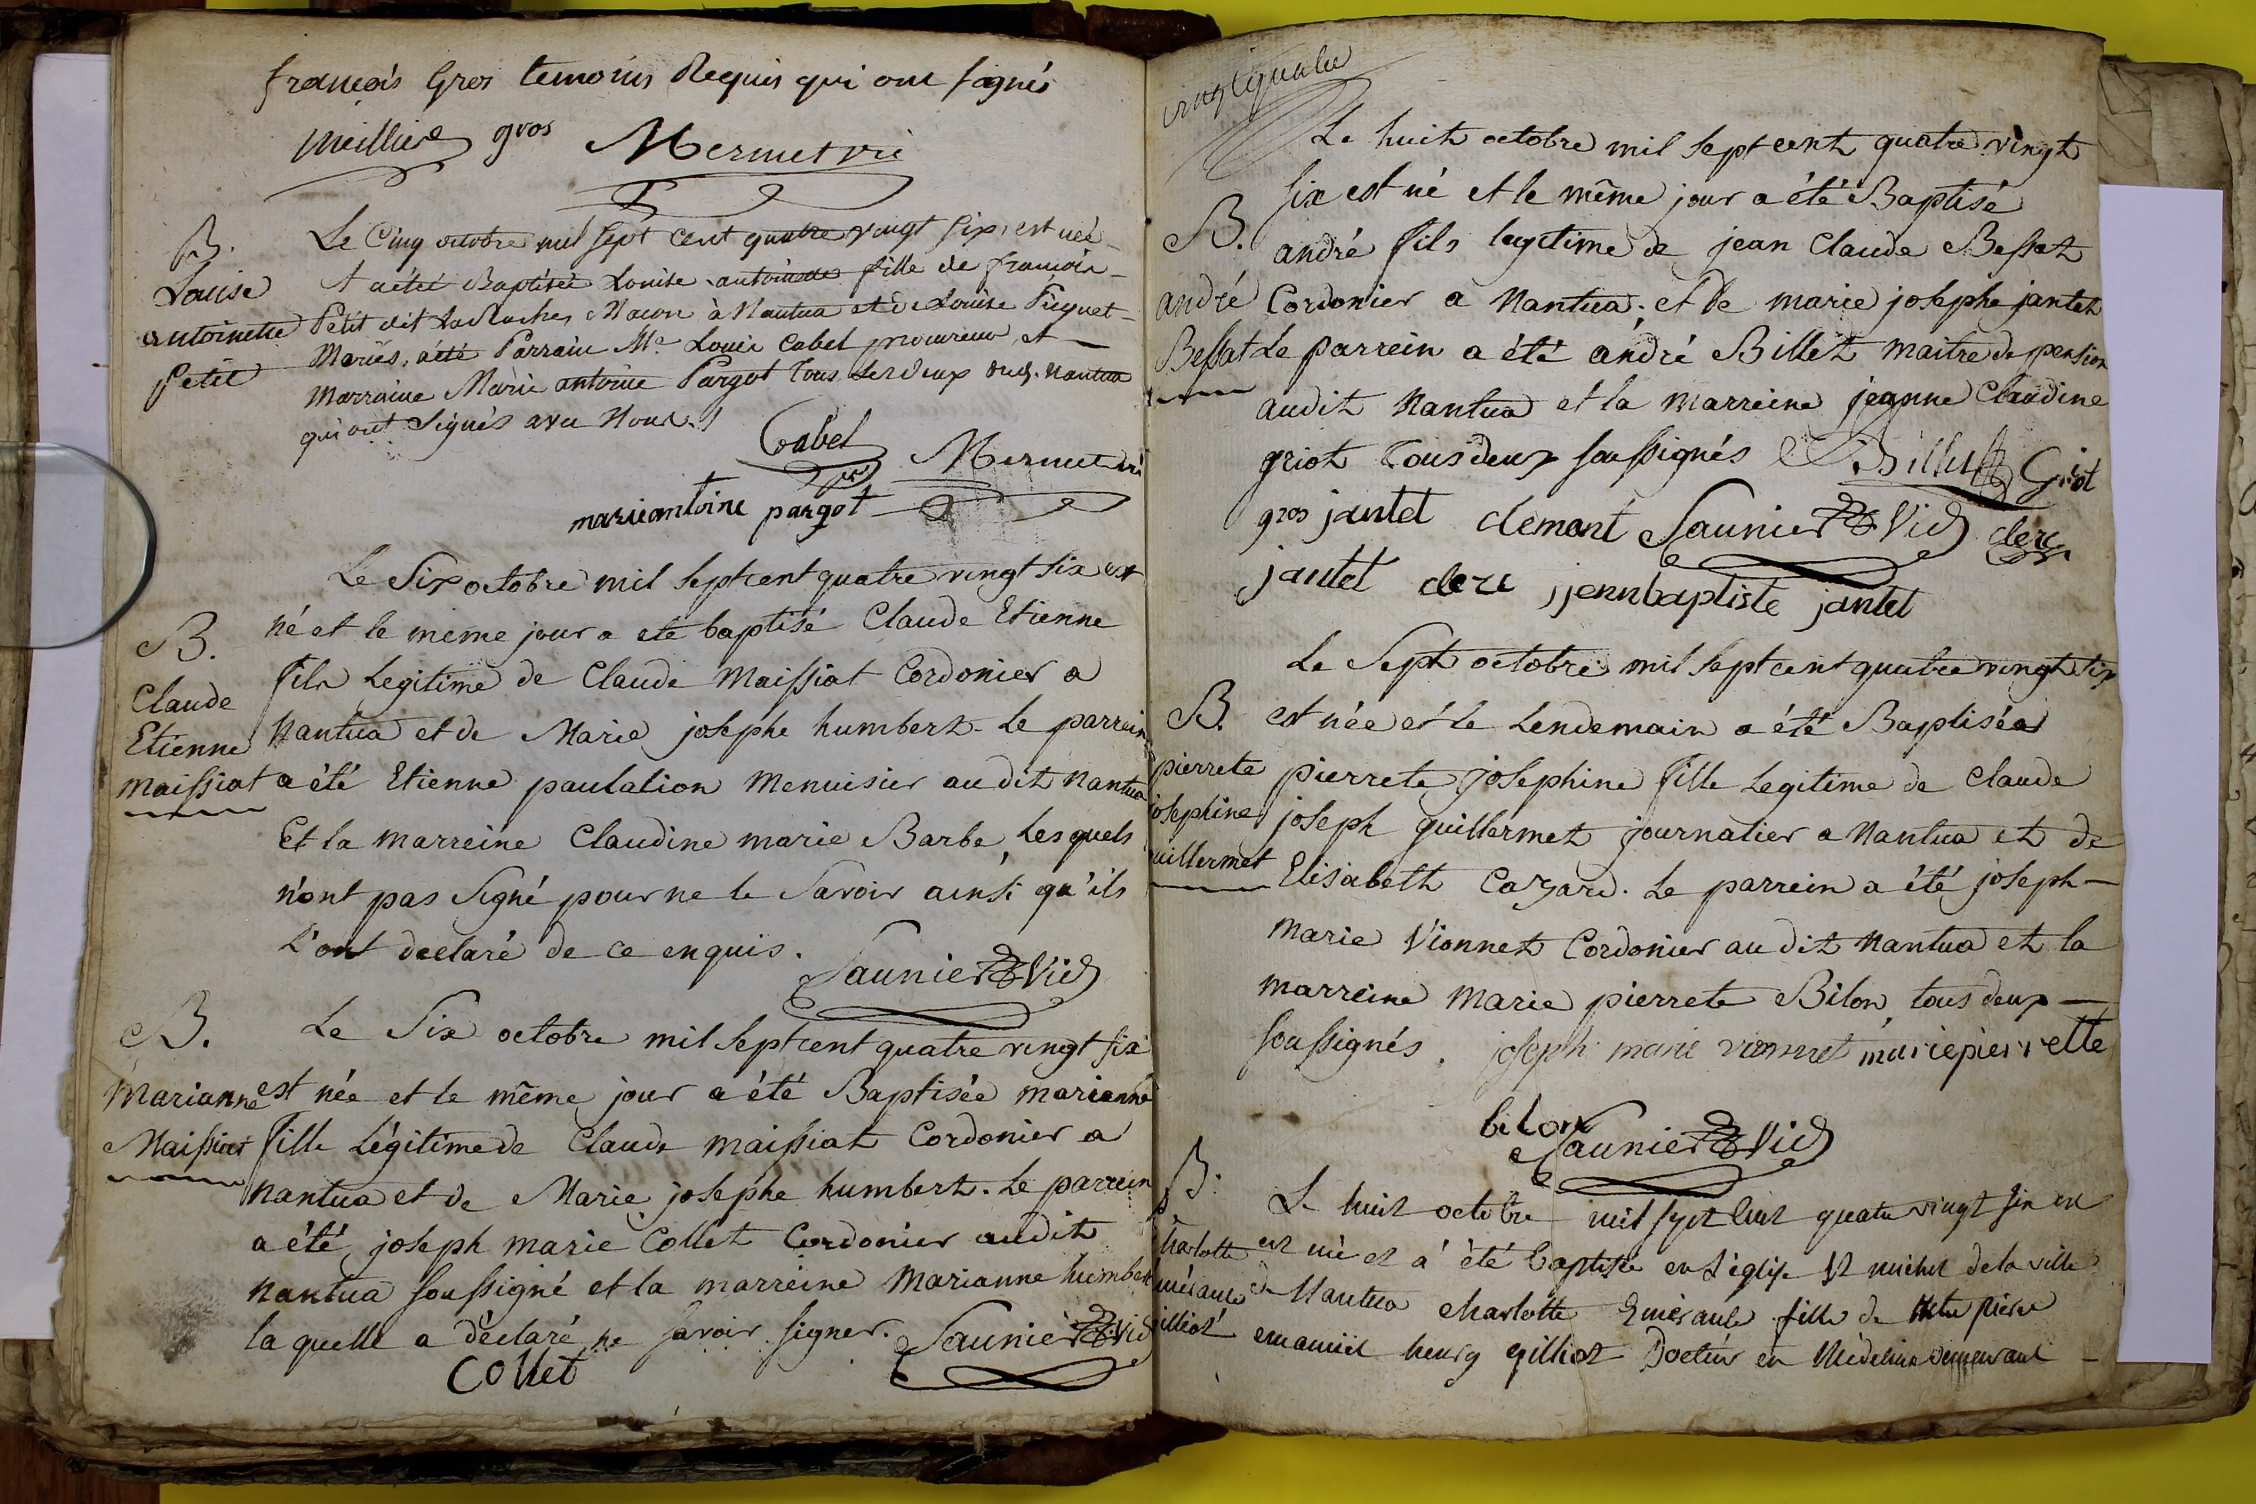 françois Gros temoins Requis qui ont signés
Meillier gros Mermet vic
B. Louise antoinette Petit
Le Cinq octobre mil sept cent quatre vingt six, est née
et a été Baptisée Louise antoinette fille de françois
Petit dit Macon à Nantua et de Louise Piquet
Mariés, a été Parrain Me Louis Cabet procureur et
Marraine Marie antoine Pargot tous les deux dud. Nantua
qui ont Signés avec Nous.
Cabet Mermet vic
marie antoine pargot
B. Claude Etienne Maissiat
Le Six octobre mil sept cent quatre vingt six est
né et le même jour a été baptisé Claude Etienne
fils Legitime de Claude Maissiat Cordonier a
Nantua et de Marie josephe humbert. Le parrein
a été Etienne paulation Menuisier au dit Nantua
Et la marreine Claudine marie Barbe, Les quels
n'ont pas Signé pour ne le Savoir ainsi qu'ils
L'ont declaré de ce enquis.
Saunier Vic
B. Marianne Maissiat
Le Six octobre mil sept cent quatre vingt six
est née et le même jour a été Baptisée marianne
fille Légitime de Claude maissiat Cordonier a
Nantua et de Marie josephe humbert. Le parrein
a été joseph marie Collet Cordonier audit
Nantua soussigné et la marreine Marianne humbert
la quelle a déclaré ne savoir signer. Saunier Vic
Collet
vingt quatre
B. andré Bessat
Le huit octobre mil sept cent quatre vingt
six est né et le même jour a été Baptisé
andré fils legitime de jean Claude Bessat
Cordonier a Nantua; et de marie josephe jantet
Le parrein a été andré Billet maitre de pension
audit Nantua et la marreine jeanne Claudine
griot tous deux soussignés Billet Griot
gros jantet clemant Saunier Vic clerc
jantet clerc jeanbaptiste jantet
B. pierrete josephine uillermet
Le Sept octobre mil sept cent quatre vingt six
est née et le Lendemain a été Baptisée
pierrete josephine fille Legitime de Claude
joseph guillermet journalier a Nantua et de
Elisabeth Cazard. Le parrein a été joseph
marie Vionnet Cordonier au dit Nantua et la
marreine Marie pierrete Bilon, tous deux
soussignés. joseph marie vionnet marie pierrette
bilon Saunier Vic
B. Charlotte illiot
Le huit octobre mil sept cent quatre vingt six
est née et a été baptisée en L'église St michel de la ville
de Nantua Charlotte fille de pierre
emanuel henry gilliot Docteur en Médecine demeurant